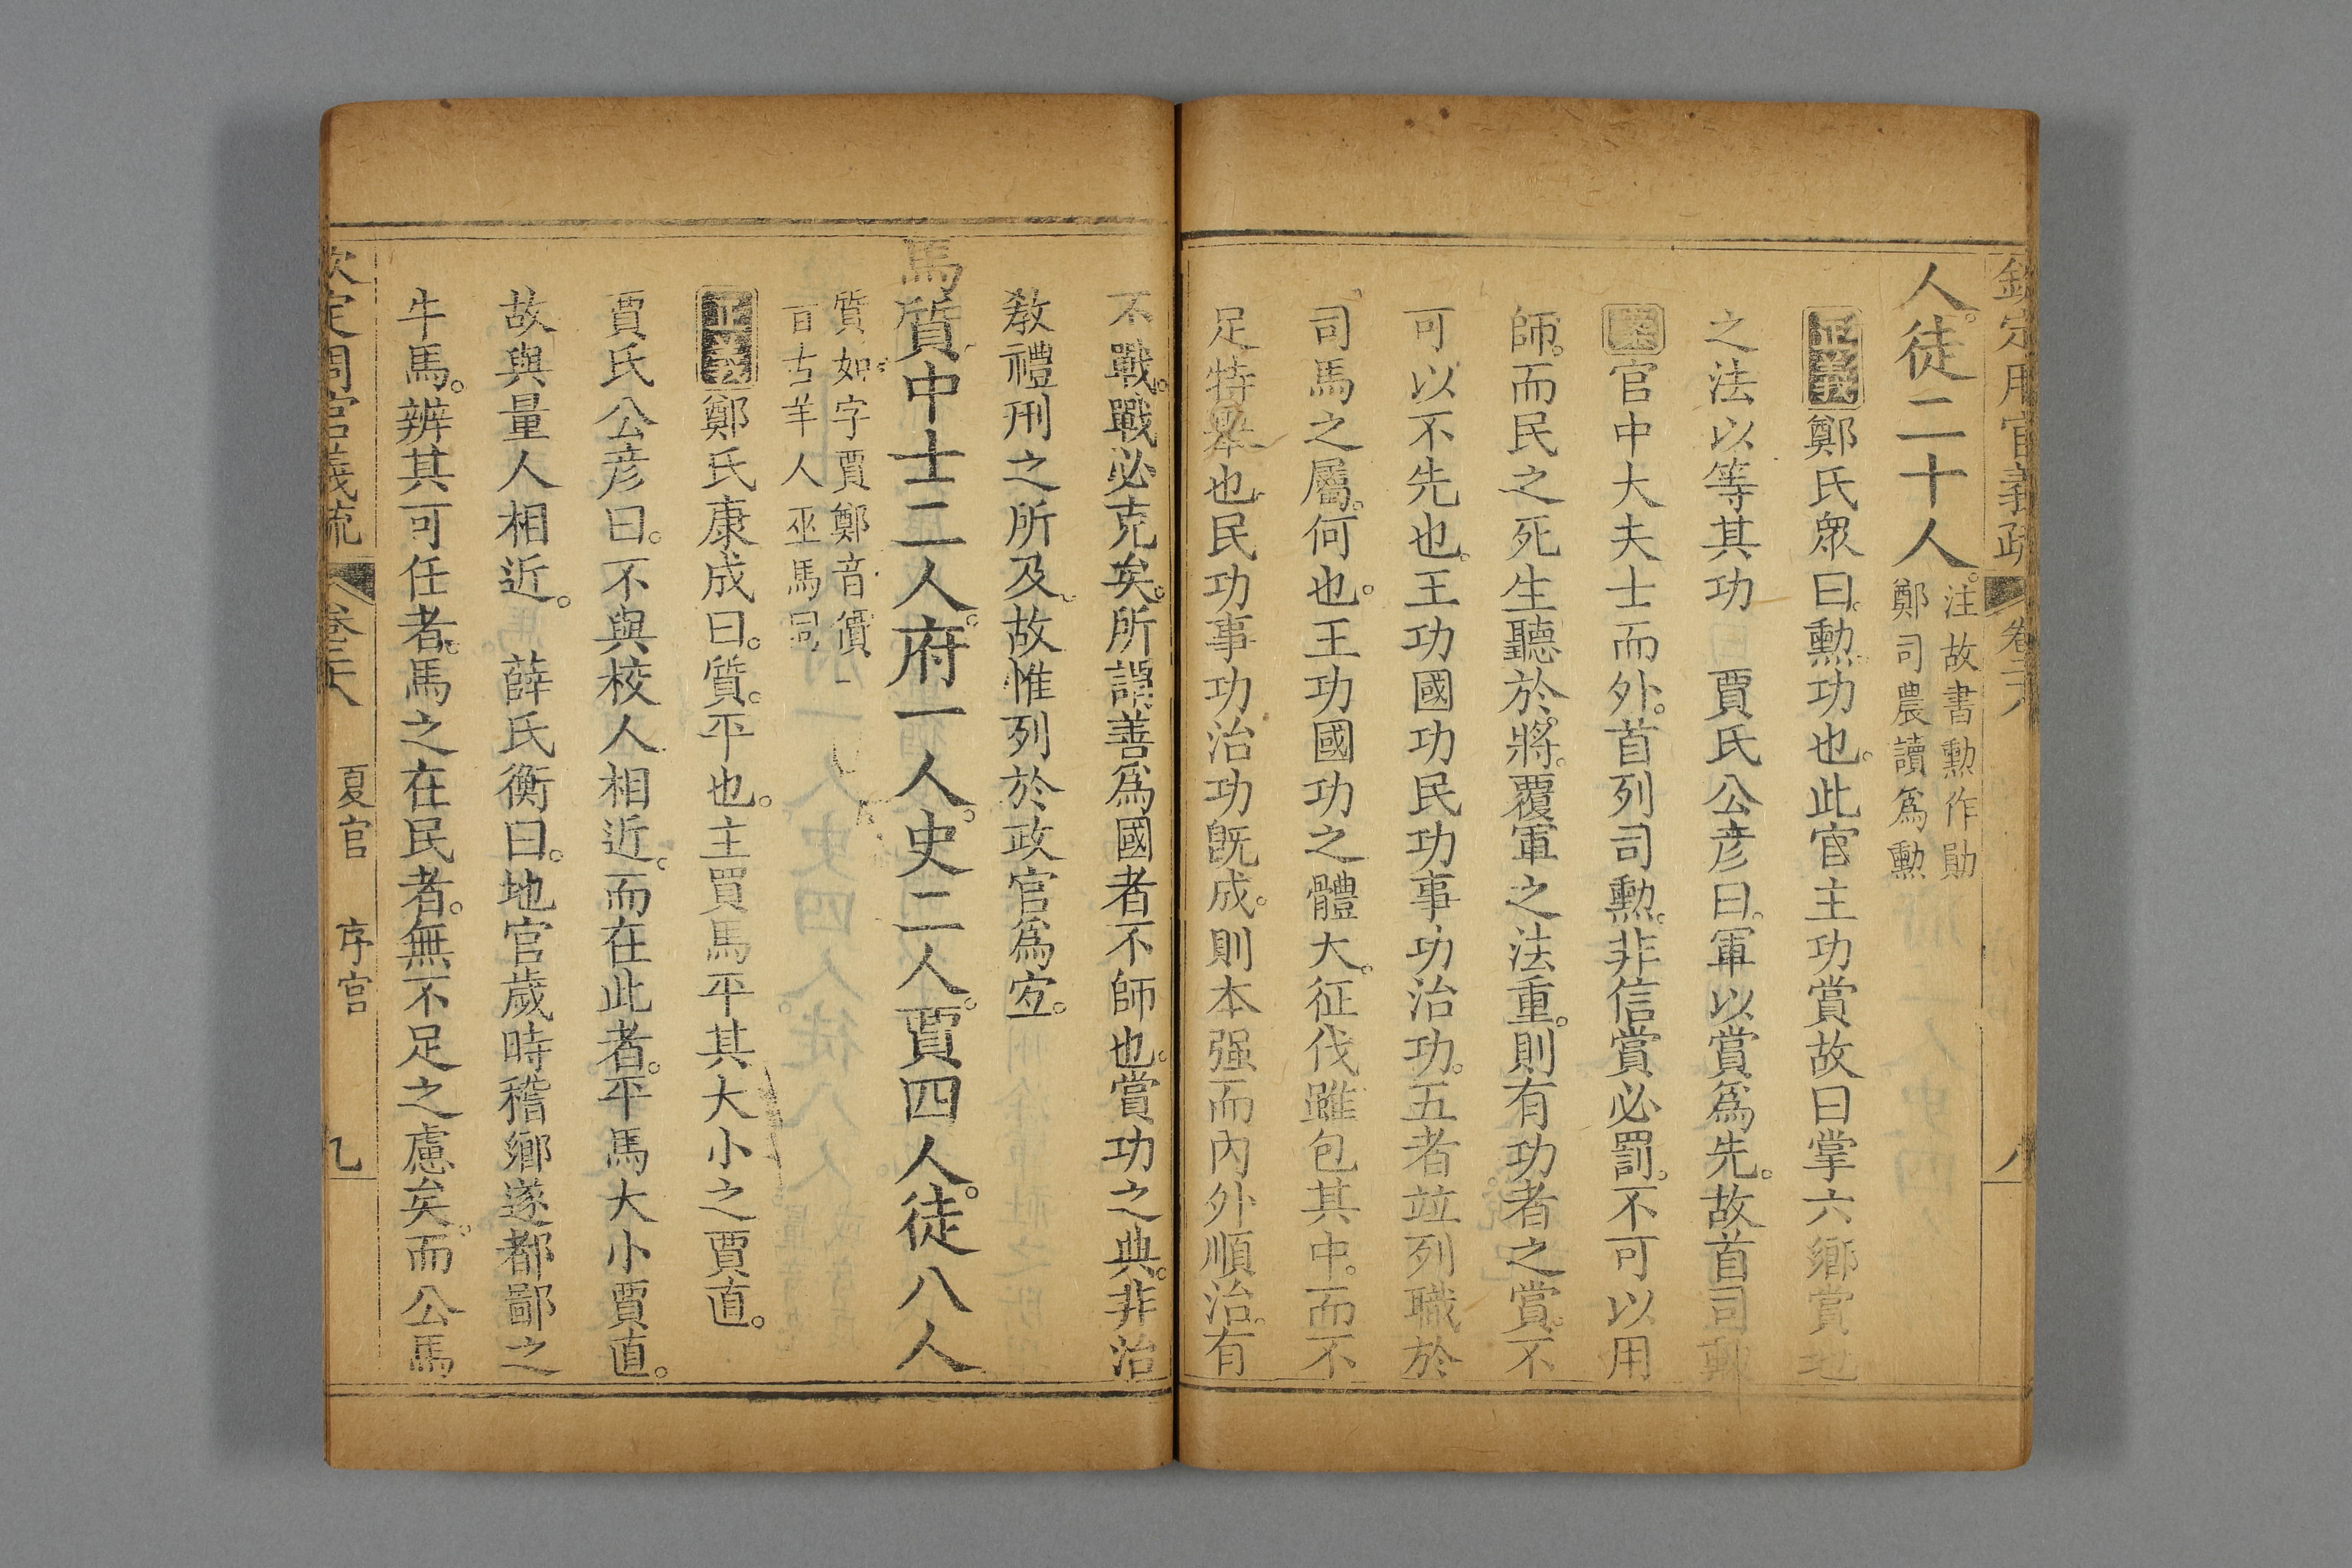 欽定周官義疏 卷二八
人。徒二十人。
注故書勳作勛
鄭司農讀爲勳
正義鄭氏衆曰。勳功也。此官主功賞故曰掌六鄉賞地
之法以等其功 賈氏公彦曰。軍以賞爲先。故首司勳
案官中大夫士而外。首列司勳。非信賞必罰。不可以用
師。而民之死生聽於將。覆軍之法重。則有功者之賞。不
可以不先也。王功國功民功事功治功。五者竝列職於
司馬之屬。何也。王功國功之體大。征伐雖包其中。而不
足特舉也。民功事功治功旣成。則本强而內外順治。有
不戰。戰必克矣。所謂善爲國者不師也。賞功之典。非治
教禮刑之所及。故惟列於政官爲宐。
馬質中士二人。府一人。史二人。賈四人。徒八人
質如字賈鄭音價
百古羊人巫馬同
正義鄭氏康成曰。質。平也。主買馬平其大小之賈直。
賈氏公彦曰。不與校人相近。而在此者。平馬大小賈直。
故與量人相近。 薛氏衡曰。地官歲時稽鄉遂都鄙之
牛馬。辨其可任者。馬之在民者。無不足之慮矣。而公馬
欽定周官義疏 卷二八 夏官 序官 九